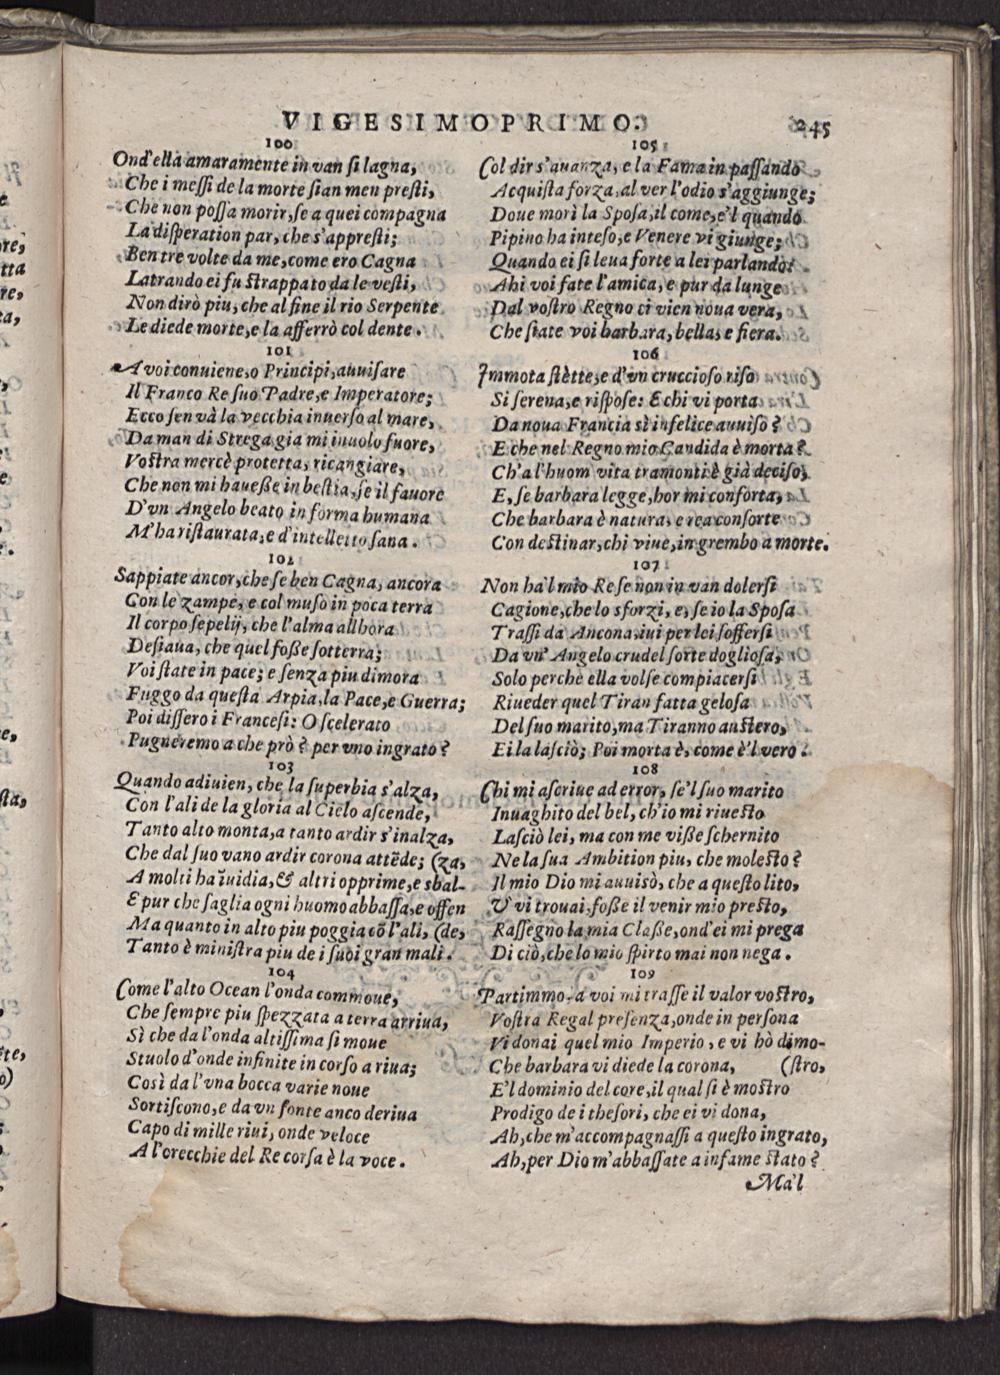 VIGESIMOPRIMO. 245
100
Ond'ella amaramente in van ſi lagna,
Che i meſſi de la morte ſian men preſti,
Che non poſſa morir, ſe a quei compagna
La diſperation par, che s'appreſti;
Ben tre volte da me, come ero Cagna
Latrando ei fu ſtrappato da le veſti,
Non dirò piu, che al fine il rio Serpente
Le diede morte, e la afferrò col dente.
101
A voi conuiene, o Principi, auuiſare
Il Franco Re ſuo Padre, e Imperatore;
Ecco ſen và la vecchia inuerſo al mare,
Da man di Strega gia mi inuolo fuore,
Voſtra mercè protetta, ricangiare,
Che non mi haueße in beſtia, ſe il fauore
D'vn Angelo beato in forma humana
M'ha riſtaurata, e d'intelletto ſana.
102
Sappiate ancor, che ſe ben Cagna, ancora
Con le zampe, e col muſo in poca terra
Il corpo ſepelij, che l'alma allhora
Deſiaua, che quel foße ſotterra;
Voi ſtate in pace; e ſenza piu dimora
Fuggo da queſta Arpia, la Pace, e Guerra;
Poi diſſero i Franceſi: O ſcelerato
Pugneremo a che prò? per vno ingrato?
103
Quando adiuien, che la ſuperbia s'alza,
Con l'ali de la gloria al Cielo aſcende,
Tanto alto monta, a tanto ardir s'inalza,
Che dal ſuo vano ardir corona attēde; (za,
A molti ha īuidia, & altri opprime, e sbal-
E pur che ſaglia ogni huomo abbaſſa, e offen
Ma quanto in alto piu poggia cō l'ali, (de,
Tanto è miniſtra piu de i ſuoi gran mali.
104
Come l'alto Ocean l'onda commoue,
Che ſempre piu ſpezzata a terra arriua,
Sì che da l'onda altiſſima ſi moue
Stuolo d'onde infinite in corſo a riua;
Così da l'vna bocca varie noue
Sortiſcono, e da vn fonte anco deriua
Capo di mille riui, onde veloce
A l'orecchie del Re corſa è la voce.
105
Col dir s'auanza, e la Fama in paſſando
Acquiſta forza, al ver l'odio s'aggiunge;
Doue morì la Spoſa, il come, e'l quando
Pipino ha inteſo, e Venere vi giunge;
Quando ei ſi leua forte a lei parlando:
Ahi voi fate l'amica, e pur da lunge
Dal voſtro Regno ci vien noua vera,
Che ſiate voi barbara, bella, e fiera.
106
Immota ſtètte, e d'vn cruccioſo riſo
Si ſerena, e riſpoſe: E chi vi porta
Da noua Francia sì infelice auuiſo?
E che nel Regno mio Candida è morta?
Ch'a l'huom vita tramonti è già deciſo,
E, ſe barbara legge, hor mi conforta,
Che barbara è natura, e rea conſorte
Con deſtinar, chi viue, in grembo a morte.
107
Non ha'l mio Re ſe non in van dolerſi
Cagione, che lo sforzi, e, ſe io la Spoſa
Traſſi da Ancona, iui per lei ſofferſi
Da vn' Angelo crudel ſorte doglioſa,
Solo perche ella volſe compiacerſi
Riueder quel Tiran fatta geloſa
Del ſuo marito, ma Tiranno auſtero,
Ei la laſciò; Poi morta è, come è'l vero.
108
Chi mi aſcriue ad error, ſe'l ſuo marito
Inuaghito del bel, ch'io mi riueſto
Laſciò lei, ma con me viße ſchernito
Ne la ſua Ambition piu, che moleſto?
Il mio Dio mi auuisò, che a queſto lito,
V' vi trouai, foße il venir mio preſto,
Raſſegno la mia Claße, ond'ei mi prega
Di ciò, che lo mio ſpirto mai non nega.
109
Partimmo. a voi mi traſſe il valor voſtro,
Voſtra Regal preſenza, onde in perſona
Vi donai quel mio Imperio, e vi hò dimo-
Che barbara vi diede la corona, (ſtro,
E'l dominio del core, il qual ſi è moſtro
Prodigo de i theſori, che ei vi dona,
Ah, che m'accompagnaſſi a queſto ingrato,
Ah, per Dio m'abbaſſate a infame ſtato?
Ma'l